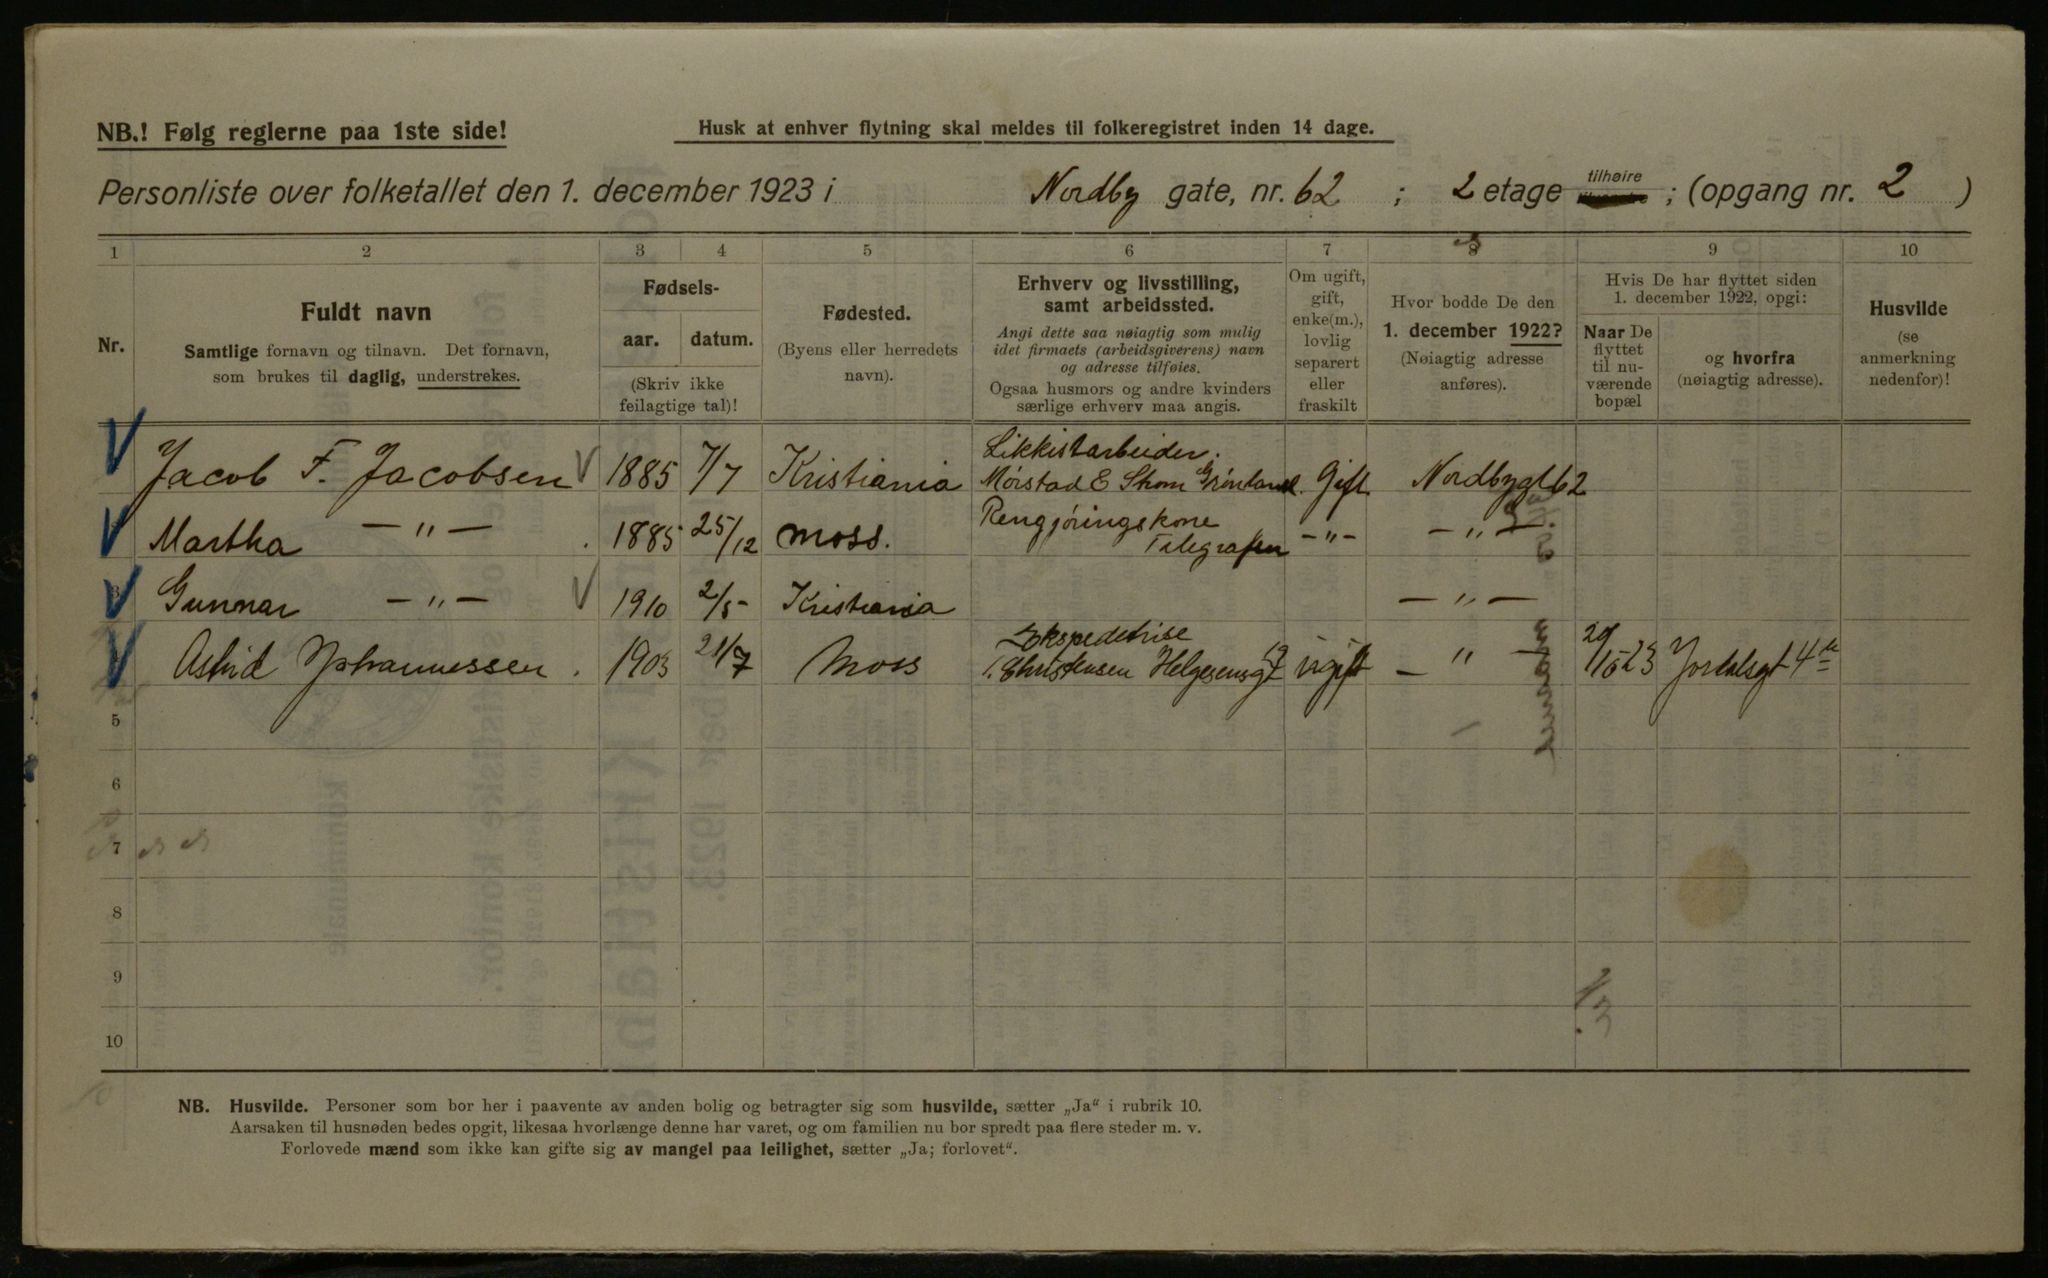 NB.! Følg reglerne paa 1ste side!
Husk at enhver flytning skal meldes til folkeregistret inden 14 dage.
Personliste over folketallet den 1. december 1923 i Nordby gate, nr. 62 ; 2 etage tilhøire ; (opgang nr. 2 )
1 2 3 4 5 6 7 8 9 10
Nr.
Fuldt navn
Samtlige fornavn og tilnavn. Det fornavn,
som brukes til daglig, understrekes.
Fødsels-
aar. datum.
(Skriv ikke
feilagtige tal)!
Fødested.
(Byens eller herredets
navn).
Erhverv og livsstilling,
samt arbeidssted.
Angi dette saa nøiagtig som mulig
idet firmaets (arbeidsgiverens) navn
og adresse tilføies.
Ogsaa husmors og andre kvinders
særlige erhverv maa angis.
Om ugift,
gift,
enke(m.),
lovlig
separert
eller
fraskilt
Hvor bodde De den
1. december 1922?
(Nøiagtig adresse
anføres).
Hvis De har flyttet siden
1. december 1922, opgi:
Naar De
flyttet
til nu-
værende
bopæl
og hvorfra
(nøiagtig adresse).
Husvilde
(se
anmerkning
nedenfor)!
Likkistarbeider.
Jacob F. Jacobsen 1885 7/7 Kristiania Mørstad E Strom Grønland. Gift Nordbygt 62
Rengjøringskone
Martha — „ — 1885 25/12 Moss. Telegrafen — „ — — „ —
Gunnar — „ — 1910 2/5 Kristiania — „ —
Ekspedetrise
Astrid Johannessen. 1903 21/7 Moss Christensen Helgesensgt 19 ugift — „ — 20/10 23 Jordalsgt 4
5
6
7
8
9
10
NB. Husvilde. Personer som bor her i paavente av anden bolig og betragter sig som husvilde, sætter „Ja“ i rubrik 10.
Aarsaken til husnøden bedes opgit, likesaa hvorlænge denne har varet, og om familien nu bor spredt paa flere steder m. v.
Forlovede mænd som ikke kan gifte sig av mangel paa leilighet, sætter „Ja; forlovet“.